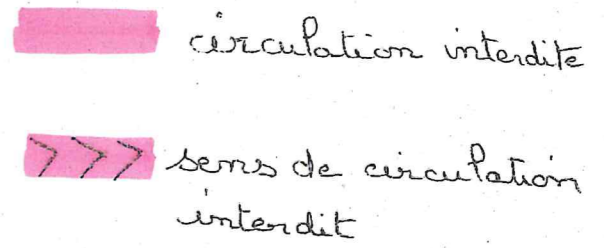 circulation interdite
> > > sens de circulation
interdit